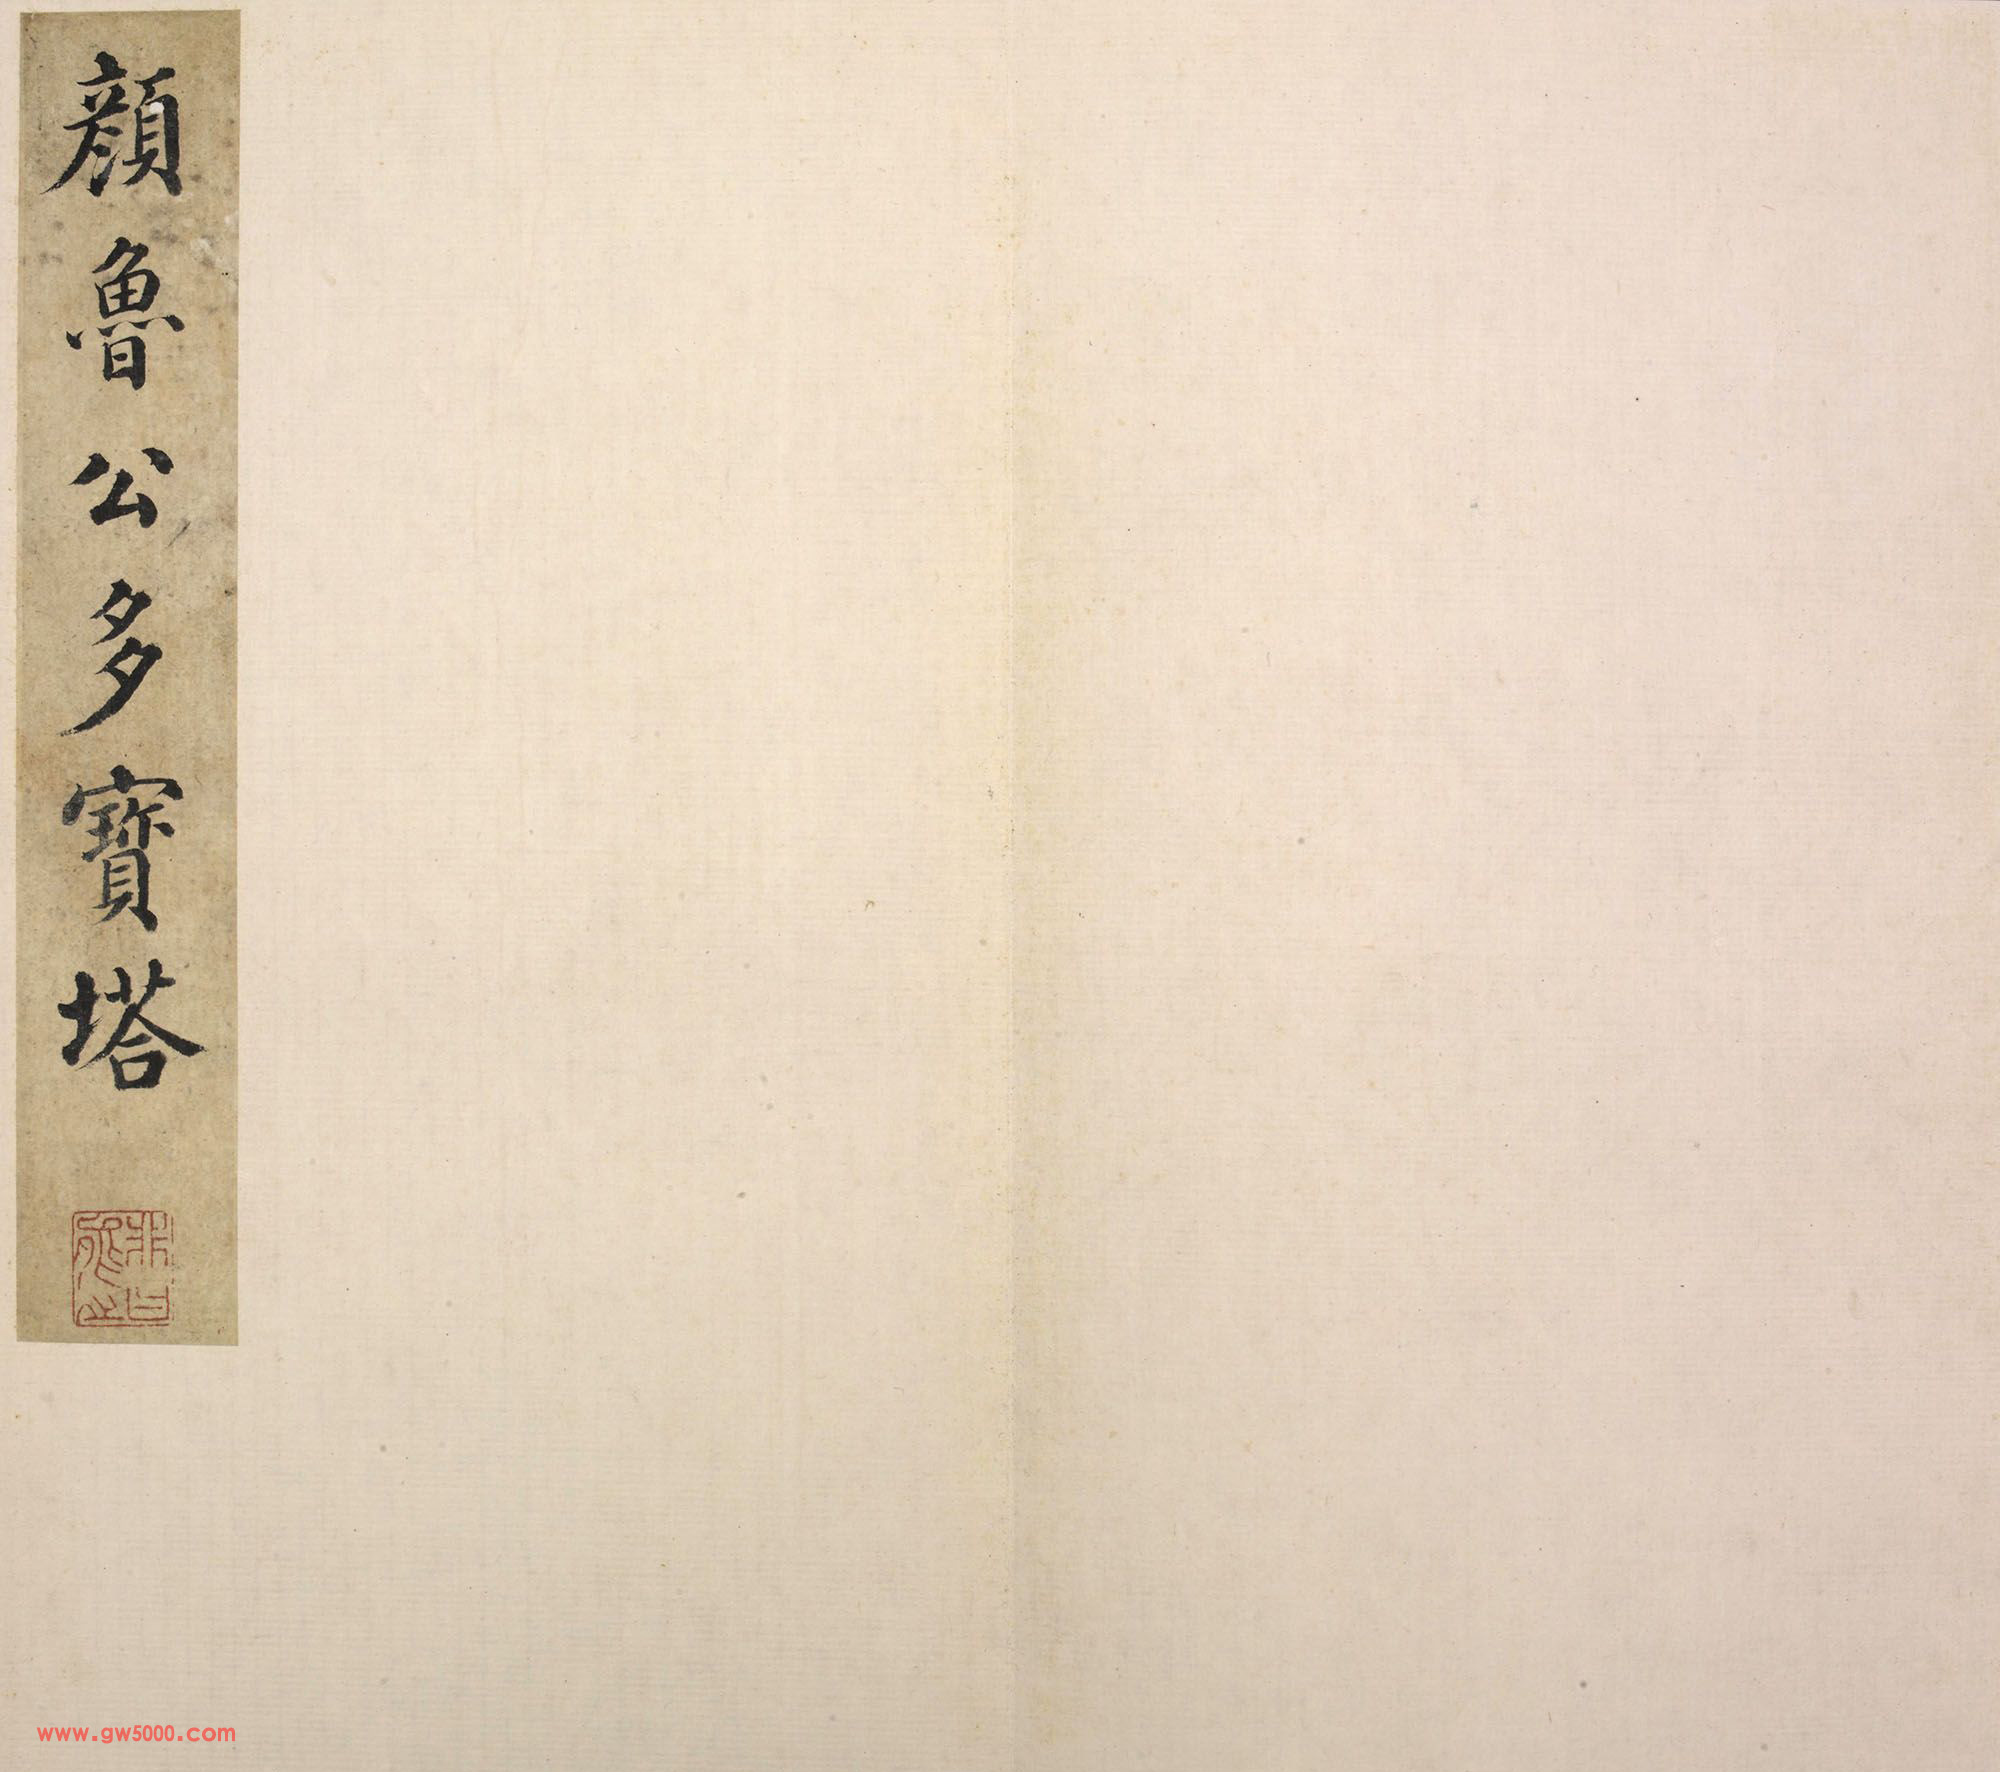 顔魯公多寶塔
www.gw5000.com